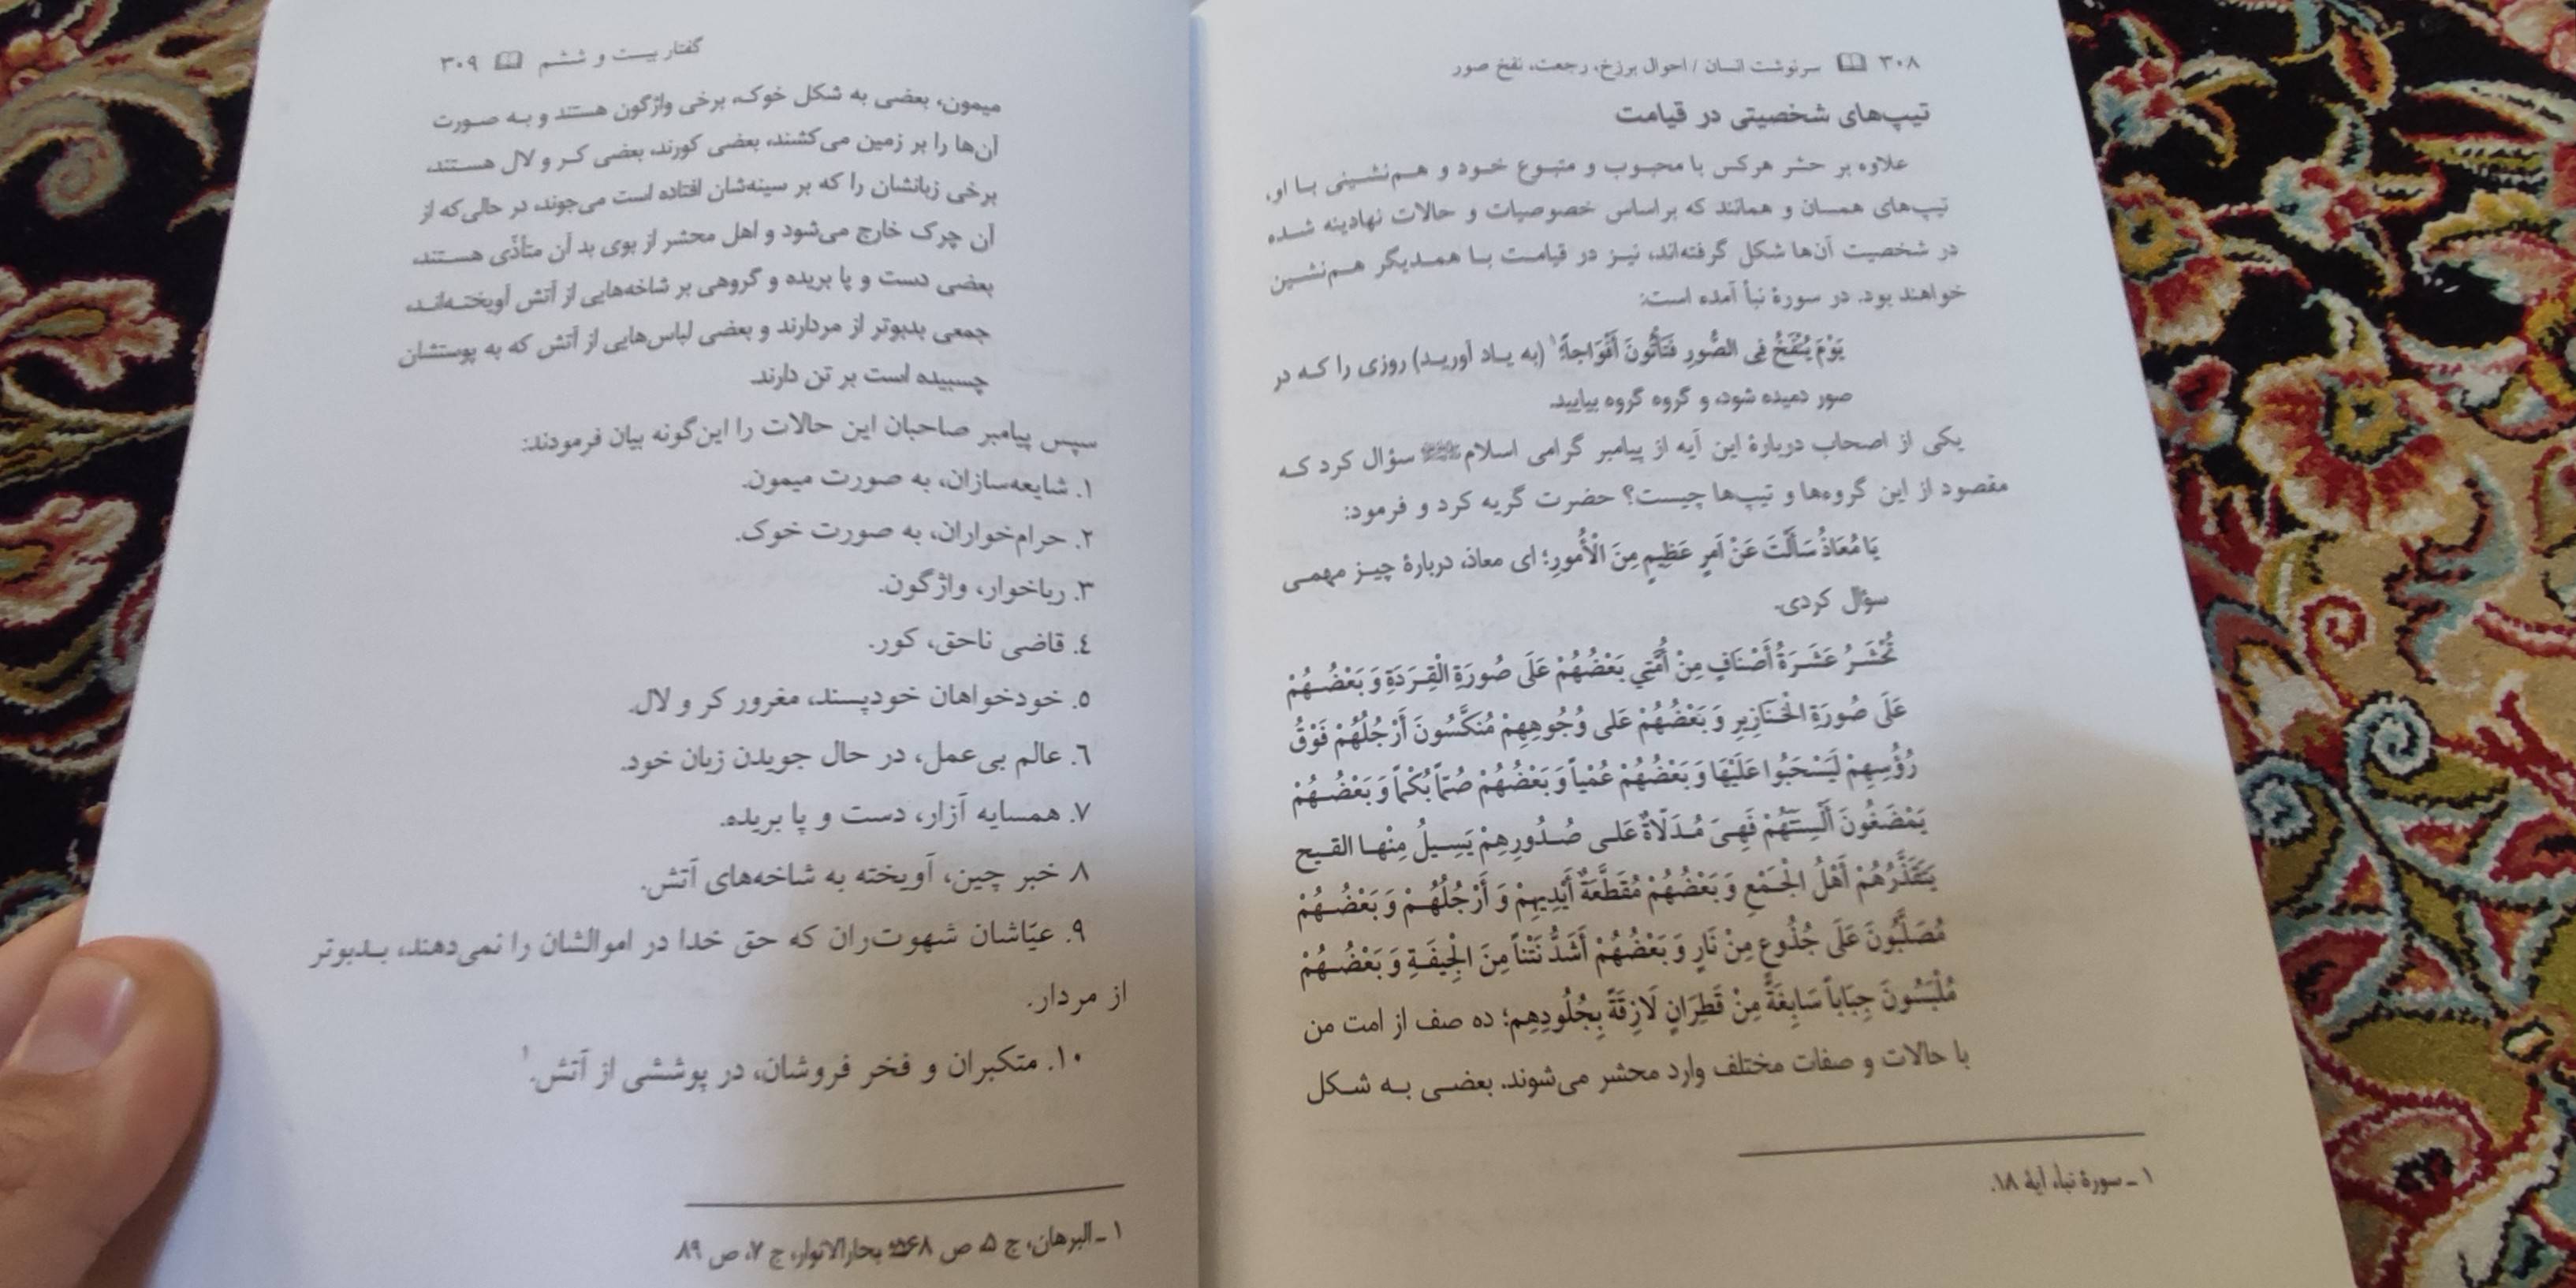 ۳۰۸ سرنوشت انسان / احوال برزخ، رجعت، نفخ صور
تیپ‌های شخصیتی در قیامت
علاوه بر حشر هرکس با محبوب و متبوع خود و هم‌نشینی با او،
تیپ‌های همسان و همانند که براساس خصوصیات و حالات نهادینه شده
در شخصیت آن‌ها شکل گرفته‌اند، نیز در قیامت با همدیگر هم‌نشین
خواهند بود. در سورهٔ نبأ آمده است:
یَوْمَ یُنْفَخُ فِی الصُّورِ فَتَأْتُونَ أَفْوَاجاً؛۱ (به یاد آورید) روزی را که در
صور دمیده شود، و گروه گروه بیایید.
یکی از اصحاب دربارهٔ این آیه از پیامبر گرامی اسلام سؤال کرد که
مقصود از این گروه‌ها و تیپ‌ها چیست؟ حضرت گریه کرد و فرمود:
یَا مُعَاذُ سَأَلْتَ عَنْ أَمرٍ عَظِیمٍ مِنَ الْأُمورِ؛ ای معاذ، دربارهٔ چیز مهمی
سؤال کردی.
تُحْشَرُ عَشَرَةُ أَصْنَافٍ مِنْ أُمَّتِي بَعْضُهُمْ عَلَى صُورَةِ الْقِرَدَةِ وَ بَعْضُهُمْ
عَلَى صُورَةِ الْخَنَازِيرِ وَ بَعْضُهُمْ عَلى وُجُوهِهِمْ مُنَكَّسُونَ أَرْجُلُهُمْ فَوْقُ
رُؤُسِهِمْ لَيَسْحَبُوا عَلَيْهَا وَ بَعْضُهُمْ عُمْياً وَ بَعْضُهُمْ صُمّاً بُكْماً وَ بَعْضُهُمْ
يَمْضَغُونَ أَلْسِنَتَهُمْ فَهِيَ مُدَلَّاةٌ عَلى صُدُورِهِمْ يَسِيلُ مِنْهـا القيح
يَتَقَذَّرُهُمْ أَهْلُ الْجَمْعِ وَ بَعْضُهُمْ مُقَطَّعَةٌ أَيْدِيهِمْ وَ أَرْجُلُهُمْ وَ بَعْضُهُمْ
مُصَلَّبُونَ عَلَى جُذُوعٍ مِنْ نَارٍ وَ بَعْضُهُمْ أَشَدُّ نَتْناً مِنَ الْجِيفَةِ وَ بَعْضُهُمْ
مُلْبَسُونَ جِبَاباً سَابِغَةً مِنْ قَطِرَانٍ لَازِقَةً بِجُلُودِهِم؛ ده صف از امت من
با حالات و صفات مختلف وارد محشر می‌شوند. بعضی به شکل
۱ ـ سورهٔ نبأ، آیهٔ ۱۸.
گفتار بیست و ششم ۳۰۹
میمون، بعضی به شکل خوک، برخی واژگون هستند و به صورت
آن‌ها را بر زمین می‌کشند، بعضی کورند، بعضی کر و لال هستند،
برخی زبانشان را که بر سینه‌شان افتاده است می‌جوند، در حالی‌که از
آن چرک خارج می‌شود و اهل محشر از بوی بد آن متأذّی هستند،
بعضی دست و پا بریده و گروهی بر شاخه‌هایی از آتش آویخته‌اند،
جمعی بدبوتر از مردارند و بعضی لباس‌هایی از آتش که به پوستشان
چسبیده است بر تن دارند.
سپس پیامبر صاحبان این حالات را این‌گونه بیان فرمودند:
۱. شایعه‌سازان، به صورت میمون.
۲. حرام‌خواران، به صورت خوک.
۳. رباخوار، واژگون.
٤. قاضی ناحق، کور.
٥. خودخواهان خودپسند، مغرور کر و لال.
٦. عالم بی‌عمل، در حال جویدن زبان خود.
۷. همسایه آزار، دست و پا بریده.
۸ خبر چین، آویخته به شاخه‌های آتش.
۹. عیّاشان شهوت‌ران که حق خدا در اموالشان را نمی‌دهند، بدبوتر
از مردار.
۱۰. متکبران و فخر فروشان، در پوششی از آتش.۱
۱ ـ البرهان، ج ۵، ص بحارالانوار، ج ۷، ص ۸۹